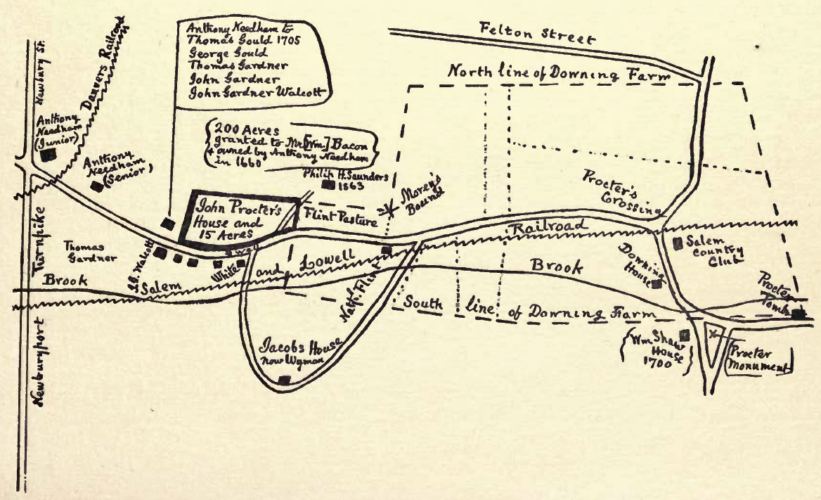 Anthony Needham to
Thomas Gould 1705
George Gould
Thomas Gardner
John Gardner
John Gardner Walcott
Felton Street
North line of Downing Farm
Newbury St.
Danvers Railroad
Anthony
Needham
(Junior)
Anthony
Needham
(Senior)
200 Acres
granted to Mr. [Wm.] Bacon
& owned by Anthony Needham
in 1660
Philip H. Saunders
1863
John Procter's
House and
15 Acres
Flint Pasture
Procter's
Crossing
Turnpike
Thomas
Gardner
White
Salem and Lowell Railroad
Brook
Brook
Nath. Flint
Downing
House
Salem
Country
Club
Procter
Tomb
South line of Downing Farm
Newburyport
Jacobs House
now Wyman
Wm Shaw
House
1700
Procter
Monument